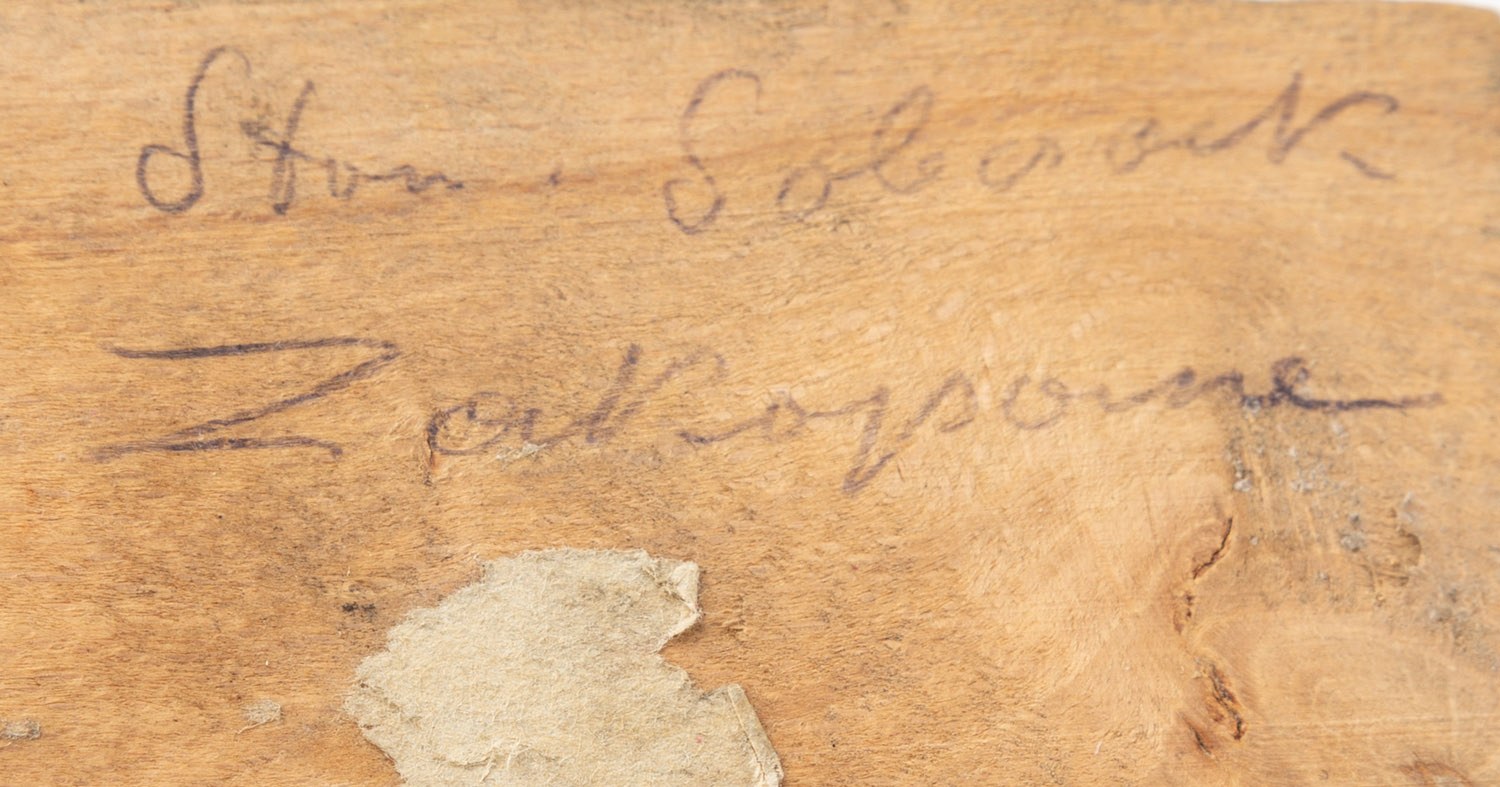 Stan. Sobczak
Zakopane